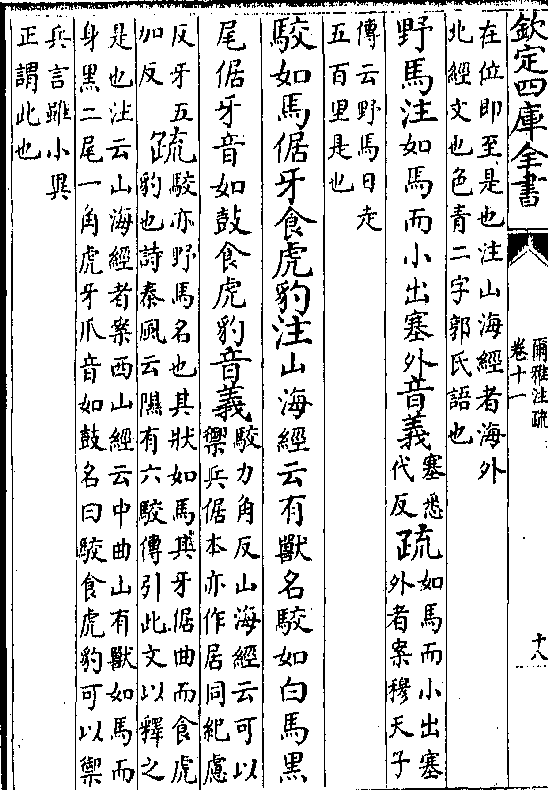 欽定四庫全書
爾雅注疏
卷十一
十八
在位即至是也注山海經者海外
北經文也色青二字郭氏語也
野馬注如馬而小出塞外音義塞悉
代反疏如馬而小出塞
外者案穆天子
傳云野馬日走
五百里是也
駮如馬倨牙食虎豹注山海經云有獸名駮如白馬黑
尾倨牙音如鼓食虎豹音義駮力角反山海經云可以
禦兵倨本亦作居同紀慮
反牙五
加反疏駮亦野馬名也其狀如馬其牙倨曲而食虎
豹也詩秦風云隰有六駮傳引此文以釋之
是也注云山海經者案西山經云中曲山有獸如馬而
身黑二尾一角虎牙爪音如鼓名曰駮食虎豹可以禦
兵言雖小異
正謂此也